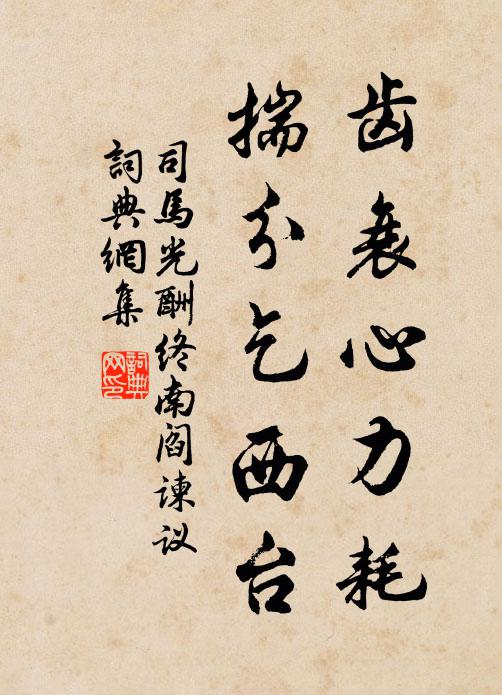 齿衰心力耗
揣分乞西台
司馬光酬终南阎谏议
詞典網集
詞典网印